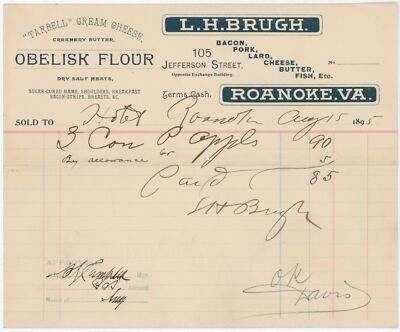 "TARBELL" CREAM CHEESE,
CREAMERY BUTTER,
OBELISK FLOUR
DRY SALT MEATS,
SUGAR-CURED HAMS, SHOULDERS, BREAKFAST
BACON-STRIPS, BREASTS, &C.
L.H. BRUGH.
105
JEFFERSON STREET,
Opposite Exchange Building.
BACON,
PORK,
LARD,
CHEESE,
BUTTER,
FISH, Etc.
No.
Terms Cash.
ROANOKE, VA.
SOLD TO Hotel Roanoke Aug 15 1895
3 Con P appls 90
By allowance 5
Paid 85
LH Brugh
APPROVED
Mgr.
Account
Month of Aug
OK
Davis